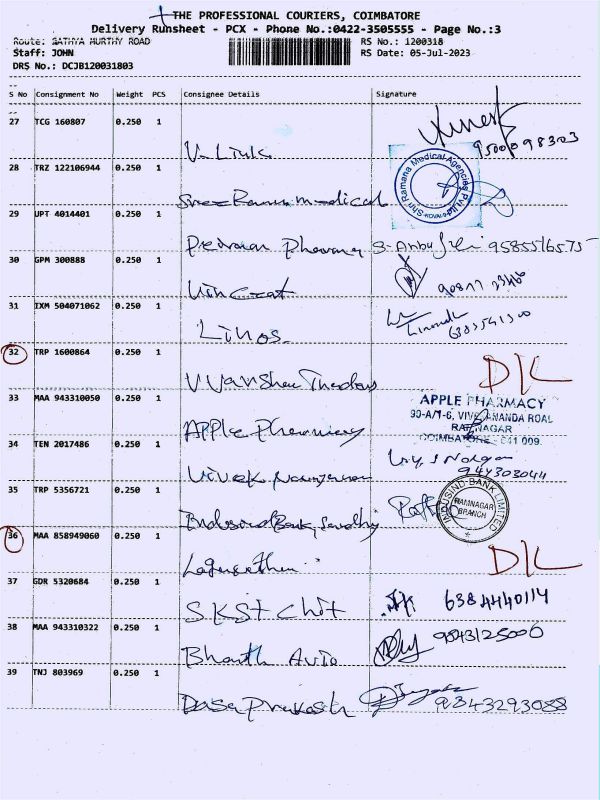 THE PROFESSIONAL COURIERS, COIMBATORE
Delivery Runsheet - PCX - Phone No.:0422-3505555 - Page No.:3
Route: SATHYA MURTHY ROAD RS No.: 1200318
Staff: JOHN RS Date: 05-Jul-2023
DRS No.: DCJB120031803
S No Consignment No Weight PCS Consignee Details Signature
27 TCG 160807 0.250 1
9500098303
V-Link
28 TRZ 122106944 0.250 1
Shri Ramana Medical Agencies Pvt Ltd
Sree Ramna medical
29 UPT 4014401 0.250 1
Pharmacy S. Anbu 9585516575
30 GPM 300888 0.250 1
31 IXM 504071062 0.250 1
Linos
6383541300
32 TRP 1600864 0.250 1
D/L
33 MAA 943310050 0.250 1
APPLE PHARMACY
90-A/1-6, VIVEKANANDA ROAD
RAMNAGAR
COIMBATORE - 641 009.
Apple Pharmacy
34 TEN 2017486 0.250 1
Vivek
35 TRP 5356721 0.250 1
INDUSIND BANK LIMITED
RAMNAGAR
BRANCH
Indusind Bank,
36 MAA 858949060 0.250 1
D/L
37 GDR 5320684 0.250 1
SKST Chit 6384440114
38 MAA 943310322 0.250 1
9843125006
Bharath Auto
39 TNJ 803969 0.250 1
Dasaprakash 9843293088